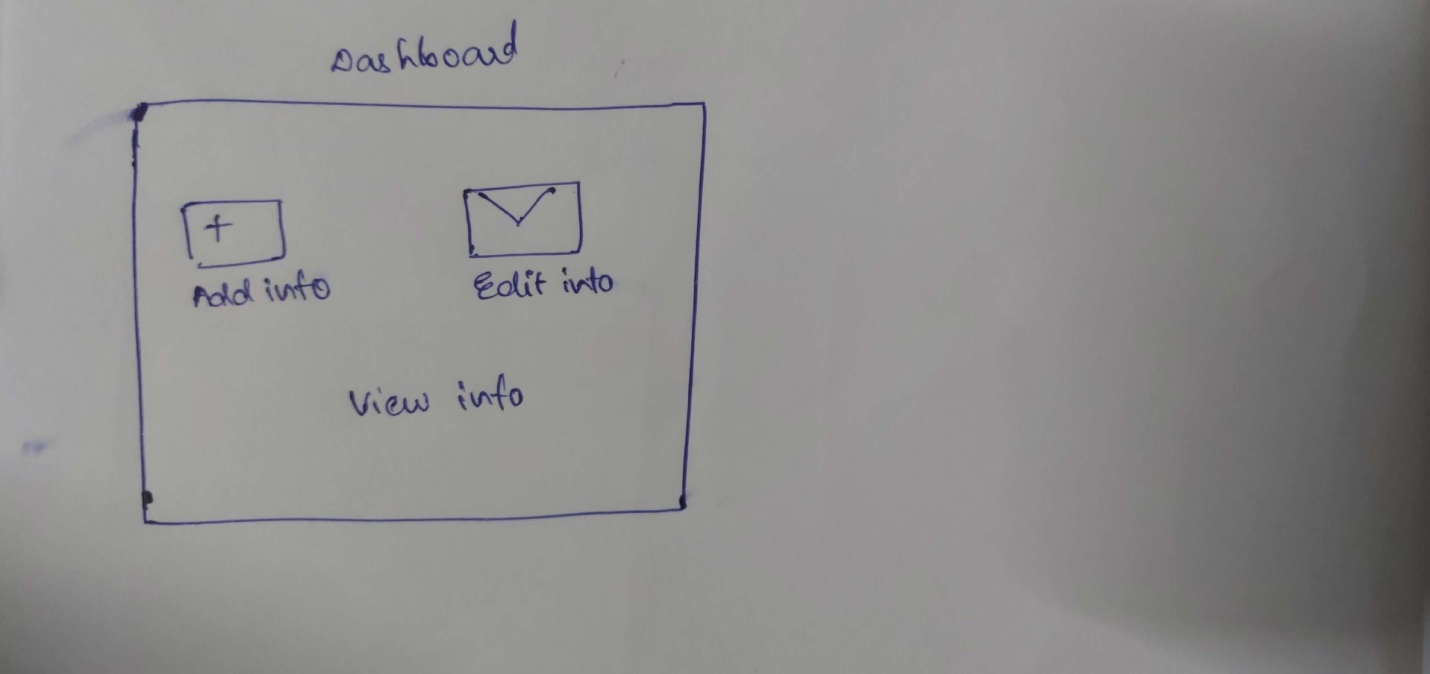 Dashboard
+
Add info Edit into
View info